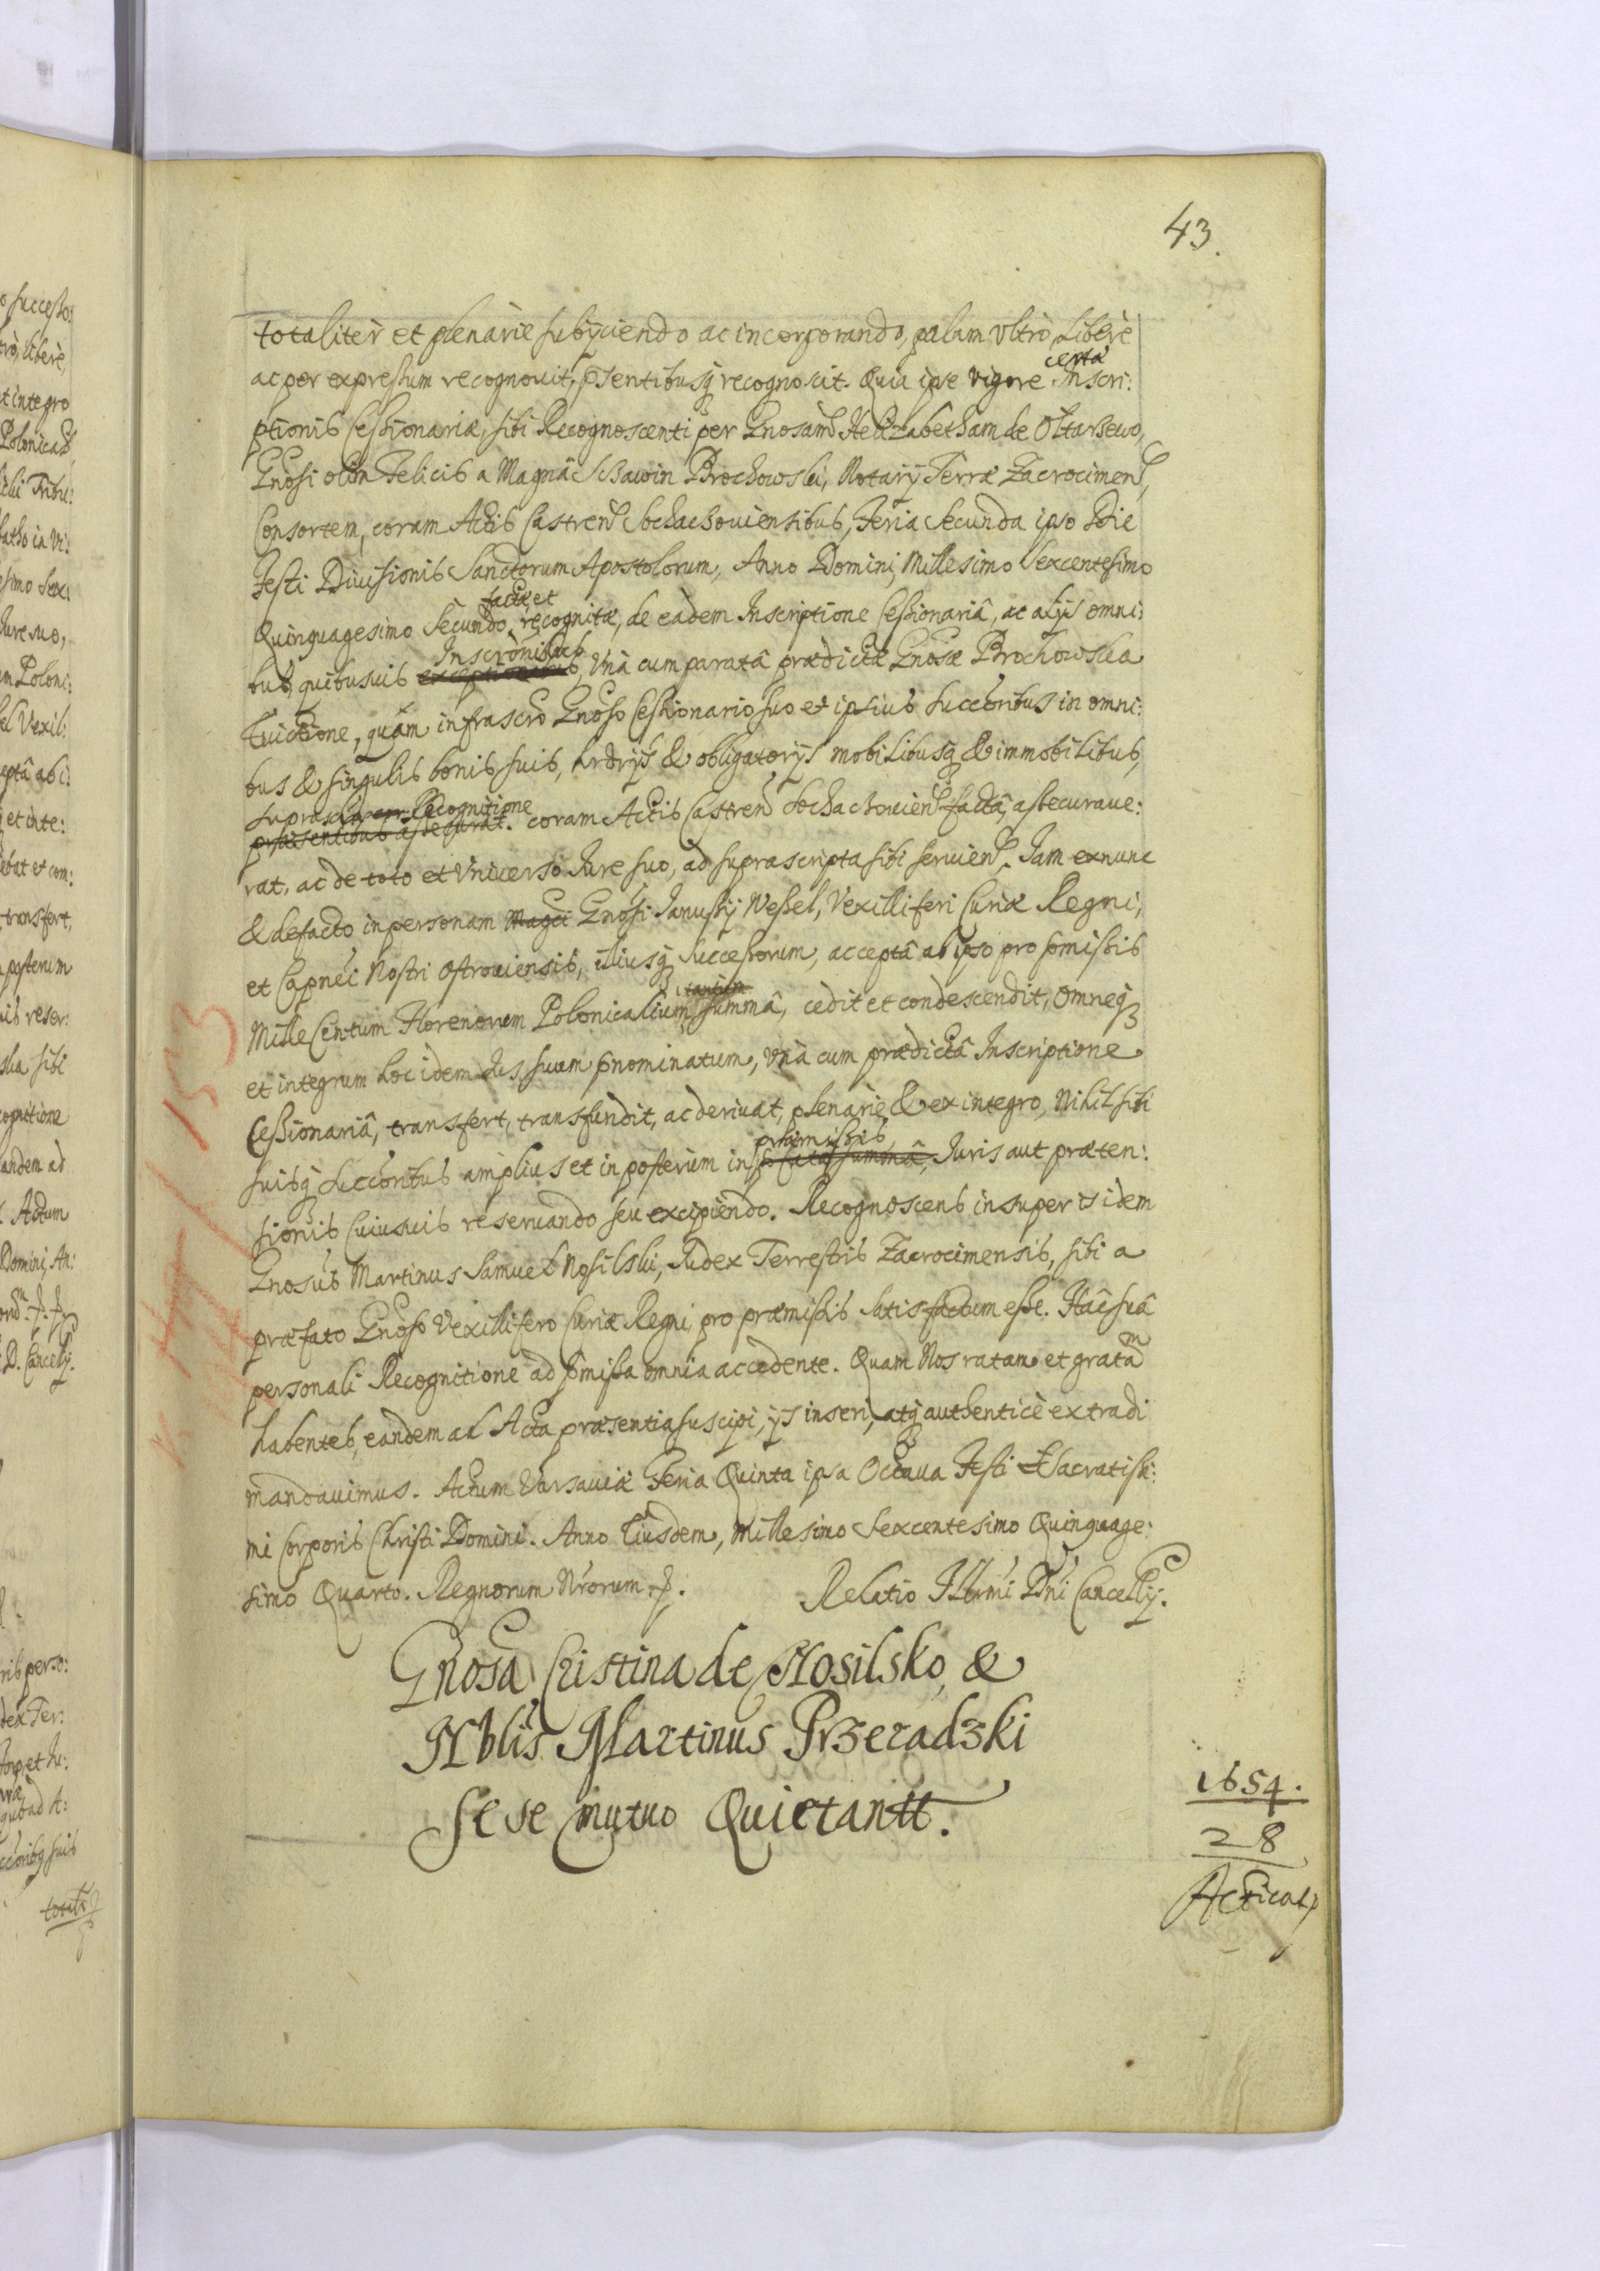 43.
totaliter et plenarie subijciendo ac incorporando, palam ultrò, Liberè
certæ
ac per expressum recognovit, pñtentibusq recognoscit. Quia ipse vigore Inscri:
ptionis Cessionariæ, sibi Recognoscenti per Gnosam Helizabetham de Ołtarzewo,
Gnosi olim Felicis a Magna Brochowski, Notarij Terræ Zacrocimens,
Consortem, coram Actis Castren Sochachouiensibus, Feria Secunda ipso Die
Festi Divisionis Sanctorum Apostolorum, Anno Domini, Millesimo Sexcentesimo
factæ et
Quinquagesimo Secundo, recognitæ, de eadem Inscriptione Cessionariâ, ac alijs omni:
Inscrõnibus
bus, quibusuis exceptionibus, Unà cum paratâ prædictæ Gnosæ Brochowska
Euictione, quam infrascrõ Gnoso Cessionario suo et ipsius Succõribus in omni:
bus & singulis bonis suis, hrdrijs & obligatorijs mobilibusq & immobilibus,
Recognitione
præsentibus assecurat. coram Actis Castren Sochachouien factâ assecuraue:
rat. ac de toto et Universo Iure suo, ad suprascripta sibi seruien. Iam ex nunc
& defacto in personam Magci Gnosi Janussij Wessel, Vexilliferi Curiæ Regni,
et Capnei Nostri Ostrouiensis, illiusq Successorum, acceptâ ab ipso pro pmissis
tantum
Mille Centum Florenorum Polonicalium, summâ, cedit et condescendit, Omneq
et integrum hoc idem Ius suum pnominatum, Unà cum prædictâ Inscriptione
Cessionariâ, transfert, transfundit, ac deriuat, plenariè & ex integro, Nihil sibi
præmissis,
suisq Succõribus amplius et in posterum in summâ, Iuris aut præten:
sionis Cuiusuis reseruando seu excipiendo. Recognoscens insuper is idem
Gnosus Martinus Samuel Nosilski, Iudex Terrestris Zacrocimensis, sibi a
præfato Gnoso Vexillifero Curiæ Regni, pro præmissis Satisfactum esse. Hâc suâ
personali Recognitione ad pmissa omnia accedente. Quam Nos ratam et gratam
habentes, eandem ad Acta præsentia suscipi, ijs inseri, atq authenticè extradi
mandauimus. Actum Varsauiæ Feria Quinta ipsa Octaua Festi Sacratissi:
mi Corporis Christi Domini. Anno Eiusdem, Millesimo Sexcentesimo Quinquage:
simo Quarto. Regnorum Nrorum.
Relatio Illrmi Dni Cancellij.
Gnosa Cristina de Nosilsko, &
Nblis Martinus Przeradzki
Sese mutuo Quietantt.
1654.
28